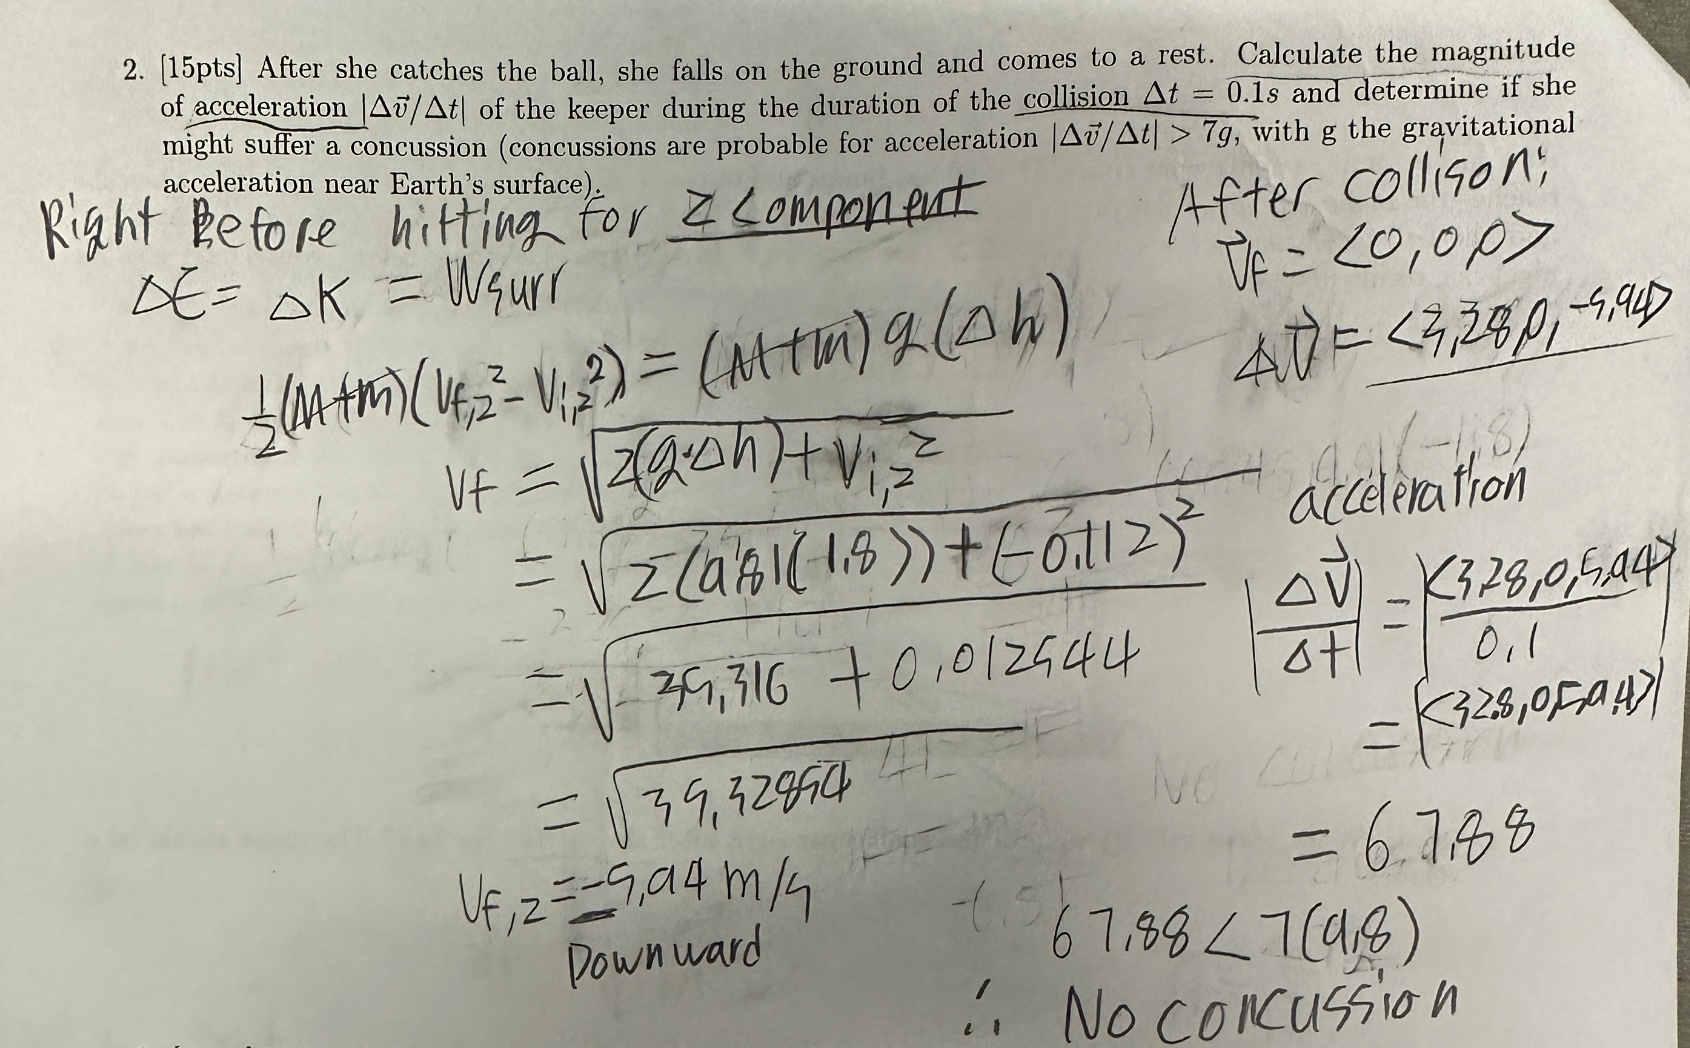 2. [15pts] After she catches the ball, she falls on the ground and comes to a rest. Calculate the magnitude
of acceleration |Δv⃗/Δt| of the keeper during the duration of the collision Δt = 0.1s and determine if she
might suffer a concussion (concussions are probable for acceleration |Δv⃗/Δt| > 7g, with g the gravitational
acceleration near Earth's surface).
Right Before hitting for z component
ΔE = ΔK = Wsurr
½(M+m)(Vf,z² - Vi,z²) = (M+m)g(Δh)
Vf = √2(g·Δh)+Vi,z²
= √2(9.81(1.8))+(-0.112)²
= √35.316 + 0.012544
= √35.32854
Vf,z = -5.94 m/s
Downward
After collison:
V⃗f = <0,0,0>
ΔV⃗ = <3.28,0,-5.94>
acceleration
|ΔV⃗/Δt| = |<3.28,0,5.94>/0.1|
= |<32.8,0,59.4>|
= 67.88
67.88 < 7(9.8)
∴ No concussion